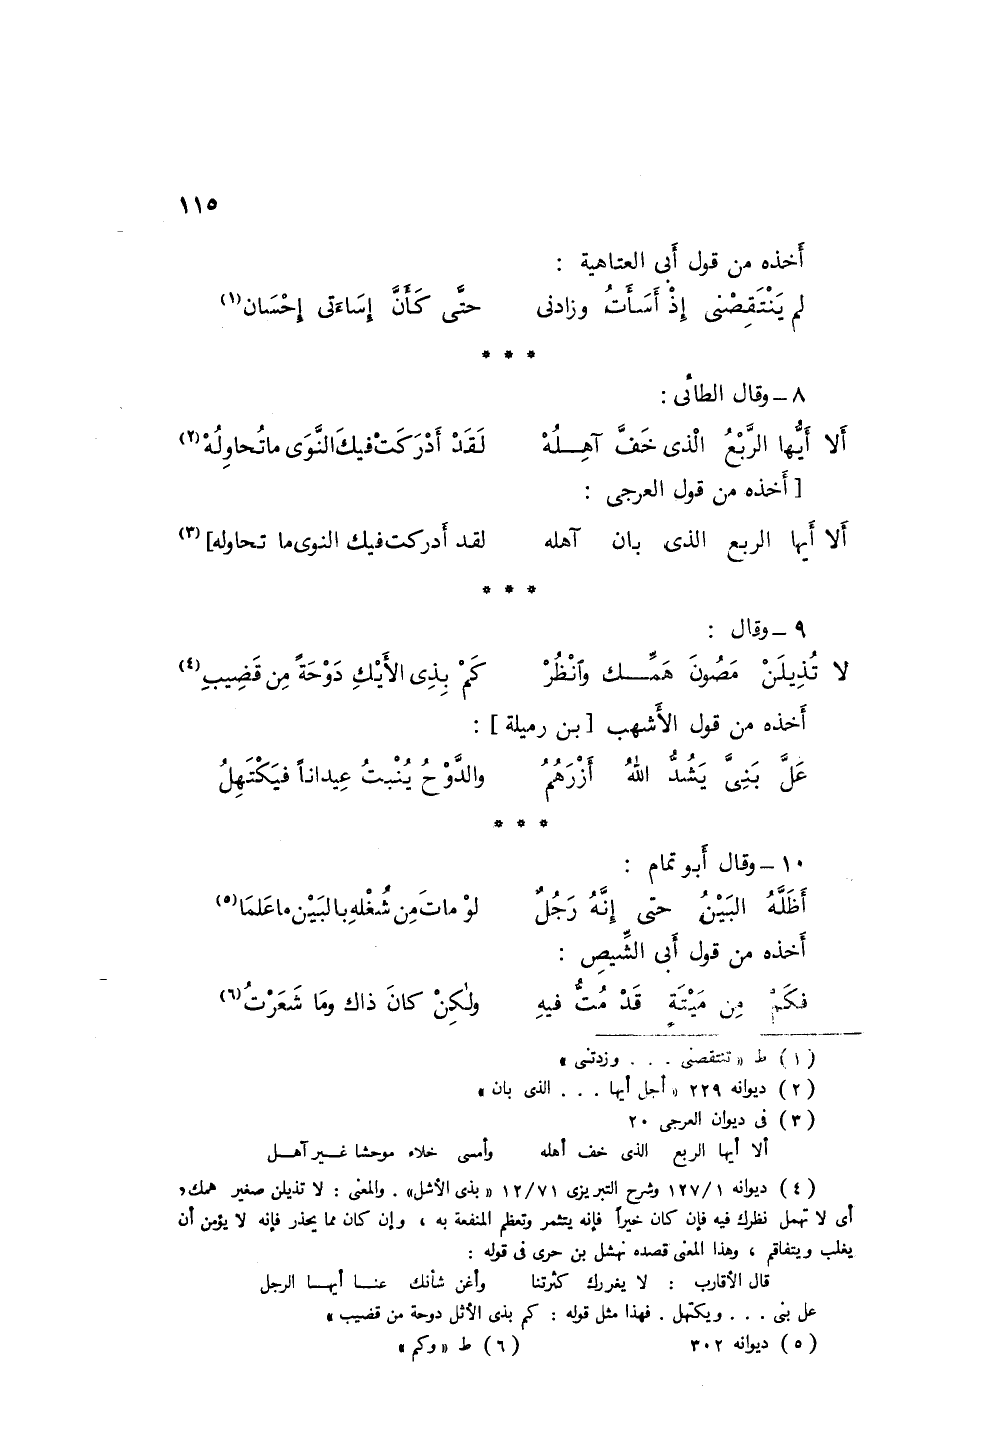 ١١٥
أَخذه من قول أَبى العتاهية :
لم يَنْتَقِصْنى إِذْ أَسَأْتُ وزادنى حتَّى كَأَنَّ إِسَاءَتى إِحْسَان(١)
* * *
٨ – وقال الطائى :
أَلا أَيُّها الرَّبْعُ الْذى خَفَّ آهِـلُهْ لَقَدْ أَدْرَكَتْ فيكَ النَّوَى ما تُحاوِلُهْ(٢)
[ أَخذه من قول العرجى :
أَلا أَيها الربع الذى بان آهله لقد أَدركت فيك النوى ما تحاوله ](٣)
* * *
٩ – وقال :
لا تُذِيلَنْ مَصُونَ هَمِّـك وٱنْظُرْ كَمْ بِذِى الأَيْكِ دَوْحَةً مِن قَضِيبِ(٤)
أَخذه من قول الأَشهب [ بن رميلة ] :
عَلَّ بَنِىَّ يَشُدُّ اللهُ أَزْرَهُمُ والدَّوْحُ يُنْبتُ عِيداناً فيَكْتَهِلُ
* * *
١٠ – وقال أَبو تمام :
أَظَلَّهُ البَيْنُ حتى إِنَّهُ رَجُلٌ لوْ ماتَ مِن شُغْلهِ بالبَيْن ما عَلمَا(٥)
أَخذه من قول أَبى الشِّيصِ :
فكَمْ مِن مَيْتَةٍ قَدْ مُتُّ فيهِ ولٰكِنْ كانَ ذاك ومَا شَعَرْتُ(٦)
( ١ ) ط « تنتقصنى . . . وزدتنى »
( ٢ ) ديوانه ٢٢٩ « أجل أيها . . . الذى بان »
( ٣ ) فى ديوان العرجى ٢٠
ألا أيها الربع الذى خف أهله وأمسى خلاء موحشا غـير آهـل
( ٤ ) ديوانه ١٢٧/١ وشرح التبريزى ١٢/٧١ « بذى الأثل » . والمعنى : لا تذيلن صغير همك ،
أى لا تهمل نظرك فيه فإن كان خيراً فإنه يتثمر وتعظم المنفعة به ، وإن كان مما يحذر فإنه لا يؤمن أن
يغلب ويتفاقم ، وهذا المعنى قصده نهشل بن حرى فى قوله :
قال الأقارب : لا يغررك كثرتنا وأغن شأنك عنـا أيهـا الرجل
عل بنى . . . ويكتهل . فهذا مثل قوله : كم بذى الأثل دوحة من قضيب »
( ٥ ) ديوانه ٣٠٢ ( ٦ ) ط « وكم »